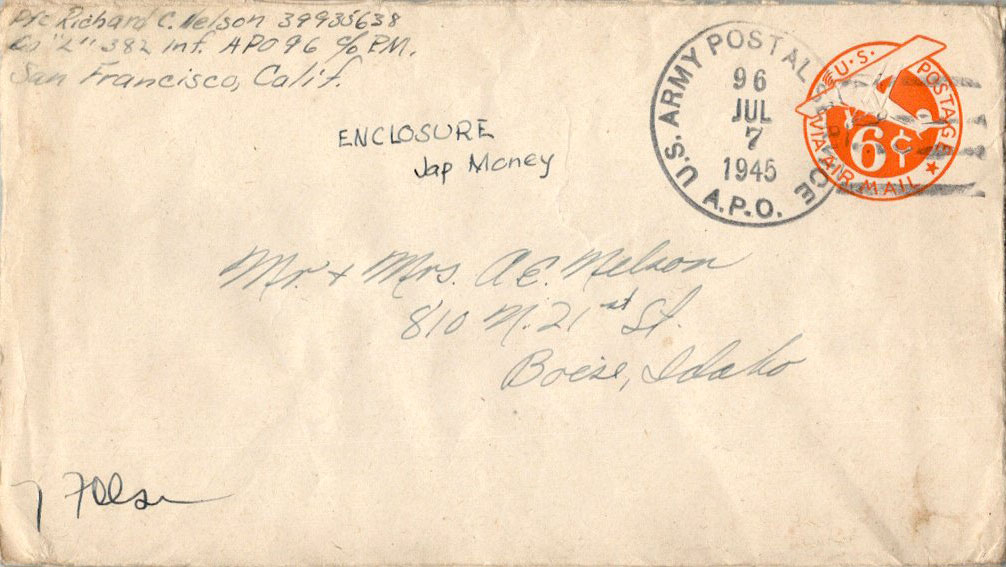 Pfc Richard C. Nelson 39935638
Co "L" 382 Inf. APO 96 c/o P.M.
San Francisco, Calif.
ENCLOSURE
Jap Money
U.S. ARMY POSTAL SERVICE
96
JUL
7
1945
A.P.O.
U.S. POSTAGE
6¢
VIA AIR MAIL
Mr. + Mrs. A.E. Nelson
810 N. 21st St.
Boise, Idaho